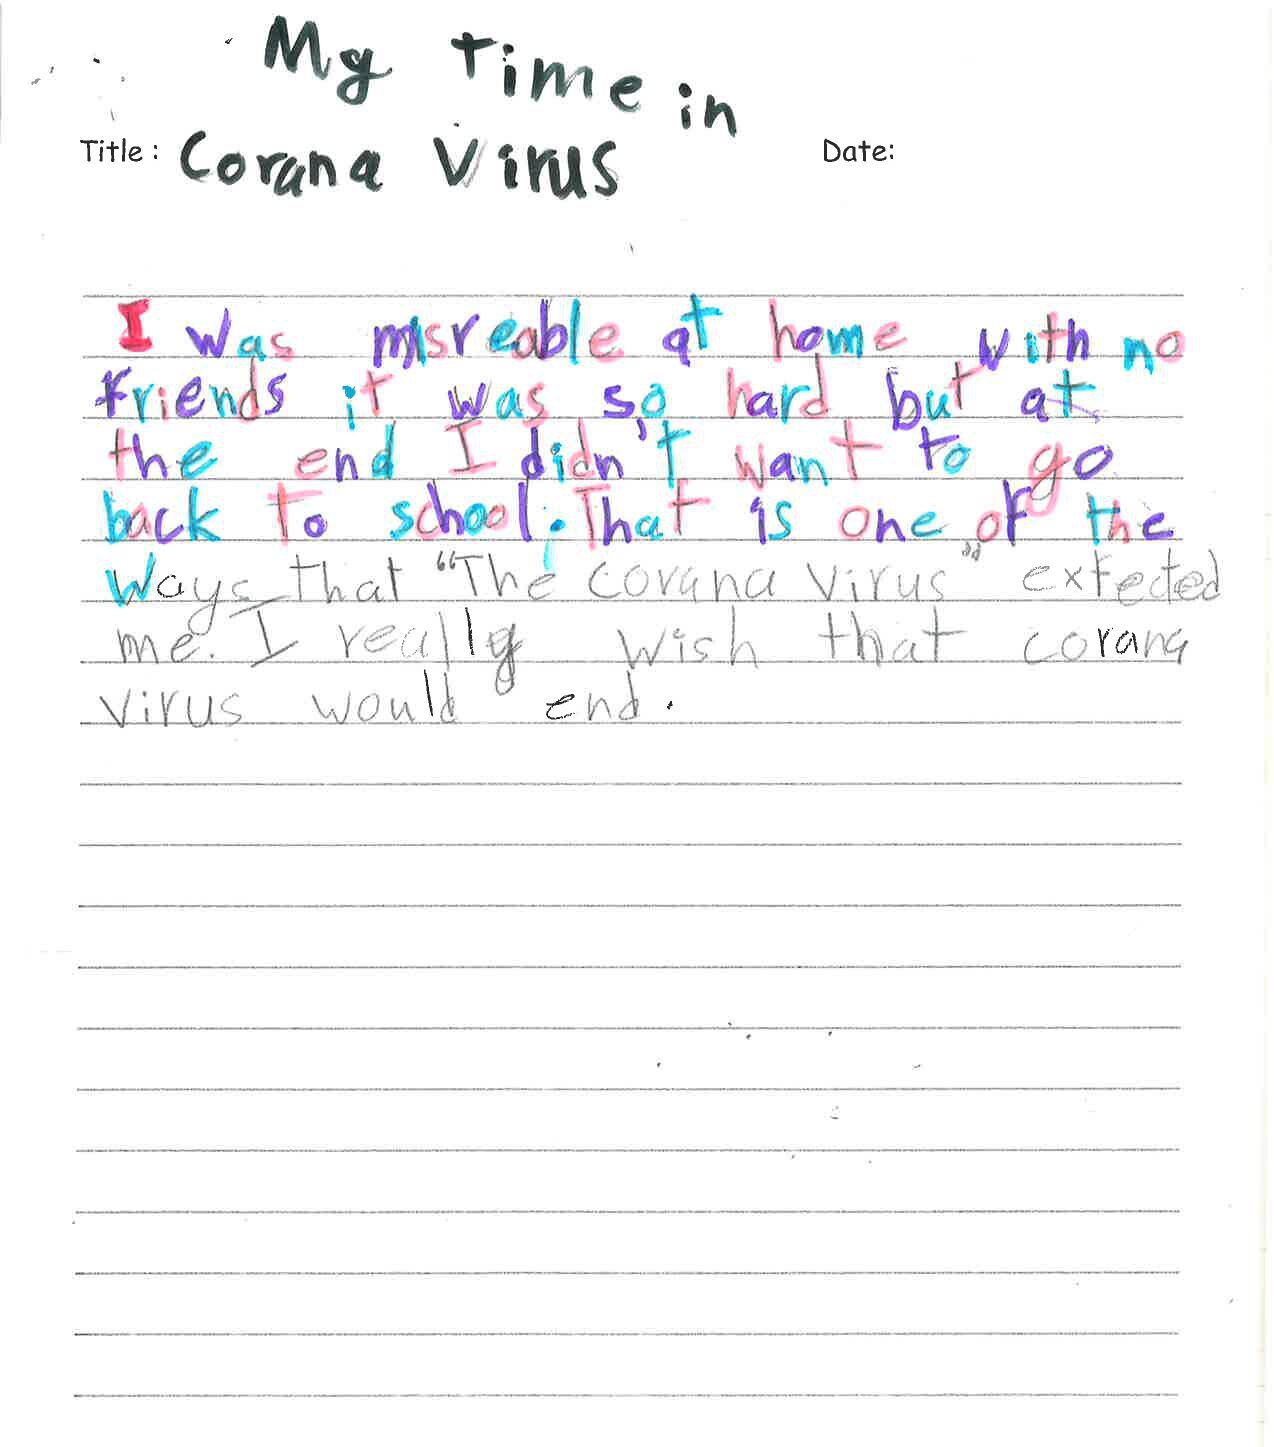 My time in
Title : Corana Virus
Date:
I was misreable at home with no
friends it was so hard but at
the end I didn't want to go
back to school. That is one of the
ways that "The corana virus" exfected
me. I really wish that corana
virus would end.